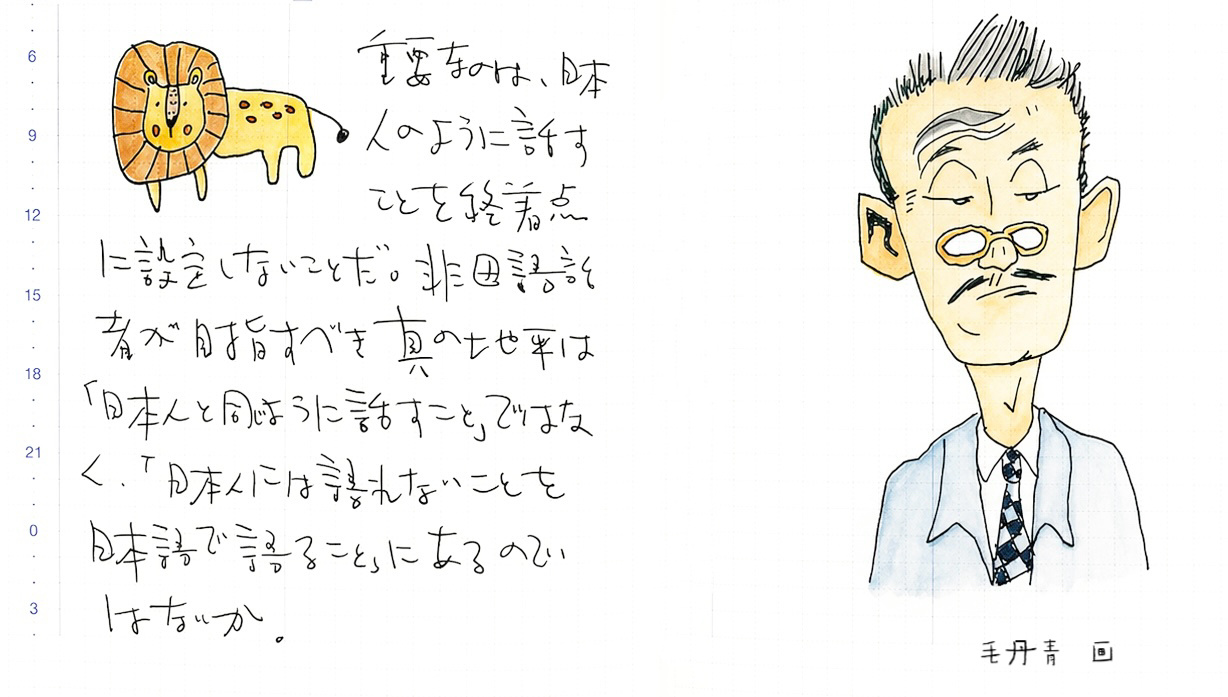 6
9
12
15
18
21
0
3
重要なのは、日本
人のように話す
ことを終着点
に設定しないことだ。非母語話
者が目指すべき真の地平は
「日本人と同じように話すこと」ではな
く、「日本人には語れないことを
日本語で語ること」にあるので
はないか。
毛丹青 画